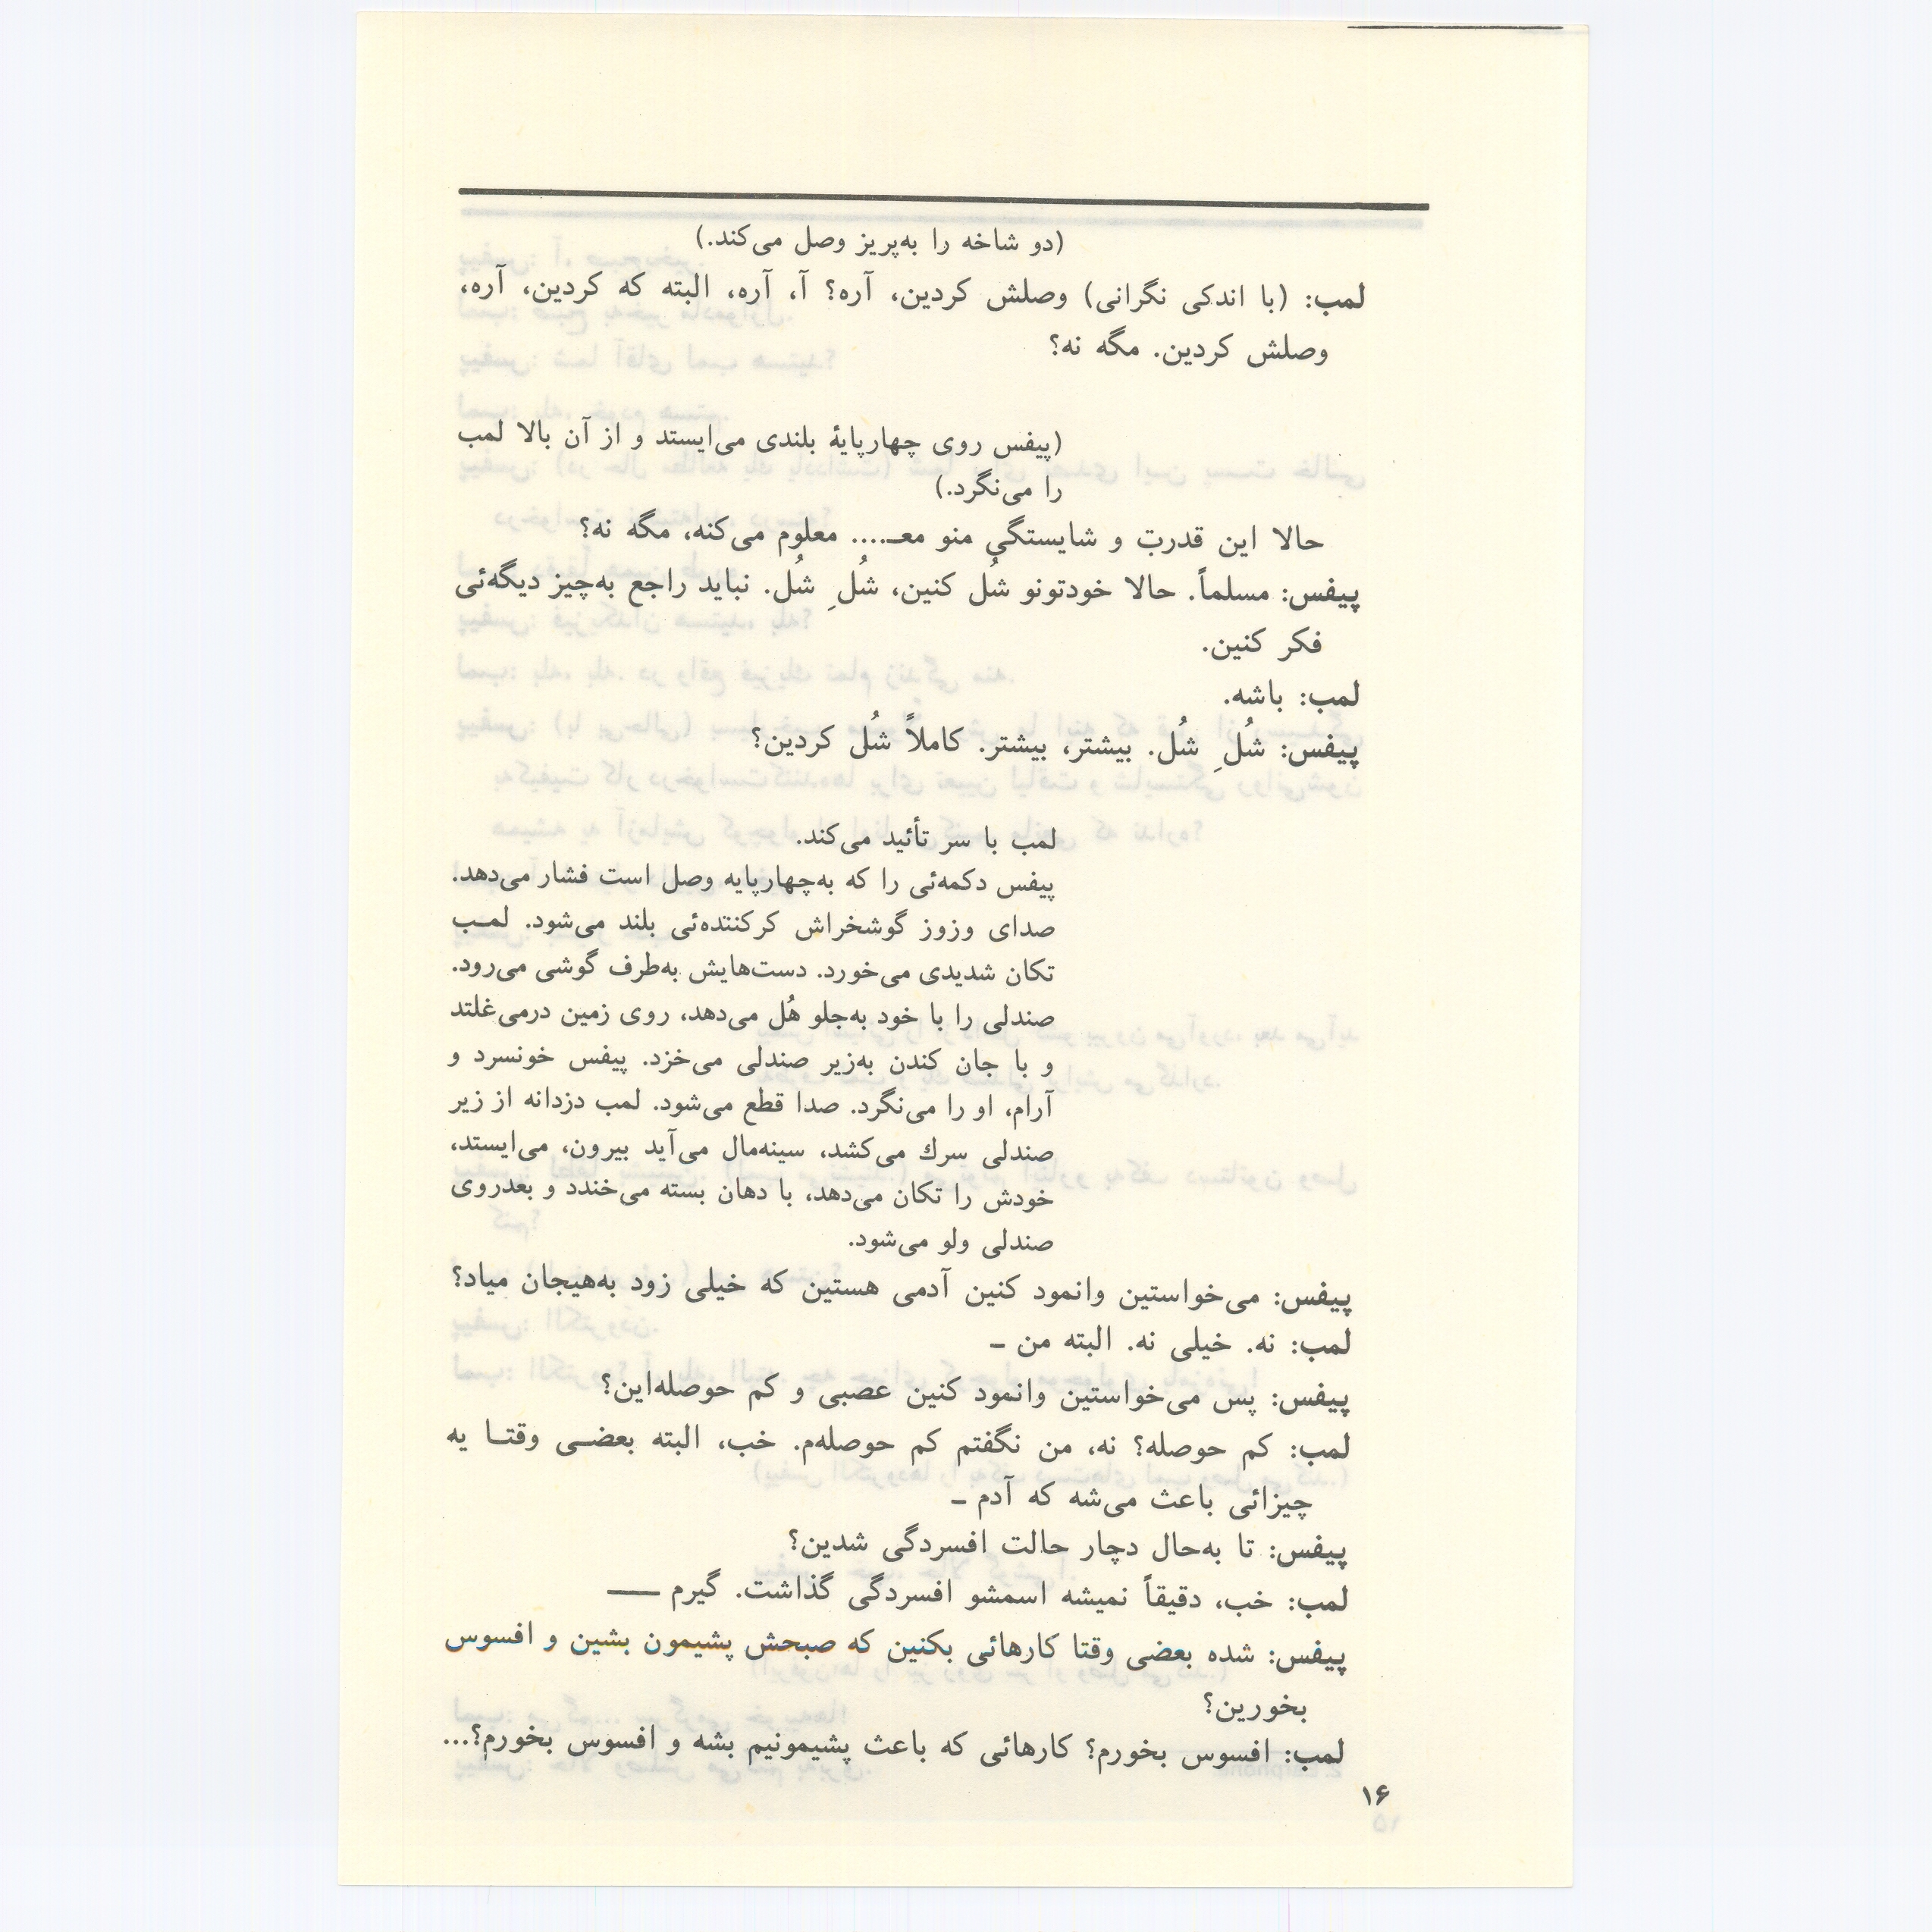 (دو شاخه را به‌پریز وصل می‌کند.)
لمب: (با اندکی نگرانی) وصلش کردین، آره؟ آ، آره، البته که کردین، آره،
وصلش کردین. مگه نه؟
(پیفس روی چهارپایهٔ بلندی می‌ایستد و از آن بالا لمب
را می‌نگرد.)
حالا این قدرت و شایستگی منو معـ.... معلوم می‌کنه، مگه نه؟
پیفس: مسلماً. حالا خودتونو شُل کنین، شُلِ شُل. نباید راجع به‌چیز دیگه‌ئی
فکر کنین.
لمب: باشه.
پیفس: شُلِ شُل. بیشتر، بیشتر. کاملاً شُل کردین؟
لمب با سر تأئید می‌کند.
پیفس دکمه‌ئی را که به‌چهارپایه وصل است فشار می‌دهد.
صدای وزوز گوشخراش کرکننده‌ئی بلند می‌شود. لمـب
تکان شدیدی می‌خورد. دست‌هایش به‌طرف گوشی می‌رود.
صندلی را با خود به‌جلو هُل می‌دهد، روی زمین درمی‌غلتد
و با جان کندن به‌زیر صندلی می‌خزد. پیفس خونسرد و
آرام، او را می‌نگرد. صدا قطع می‌شود. لمب دزدانه از زیر
صندلی سرك می‌کشد، سینه‌مال می‌آید بیرون، می‌ایستد،
خودش را تکان می‌دهد، با دهان بسته می‌خندد و بعدروی
صندلی ولو می‌شود.
پیفس: می‌خواستین وانمود کنین آدمی هستین که خیلی زود به‌هیجان میاد؟
لمب: نه. خیلی نه. البته من ـ
پیفس: پس می‌خواستین وانمود کنین عصبی و کم حوصله‌این؟
لمب: کم حوصله؟ نه، من نگفتم کم حوصله‌م. خب، البته بعضـی وقتـا یه
چیزائی باعث می‌شه که آدم ـ
پیفس: تا به‌حال دچار حالت افسردگی شدین؟
لمب: خب، دقیقاً نمیشه اسمشو افسردگی گذاشت. گیرم ——
پیفس: شده بعضی وقتا کارهائی بکنین که صبحش پشیمون بشین و افسوس
بخورین؟
لمب: افسوس بخورم؟ کارهائی که باعث پشیمونیم بشه و افسوس بخورم؟...
۱۶